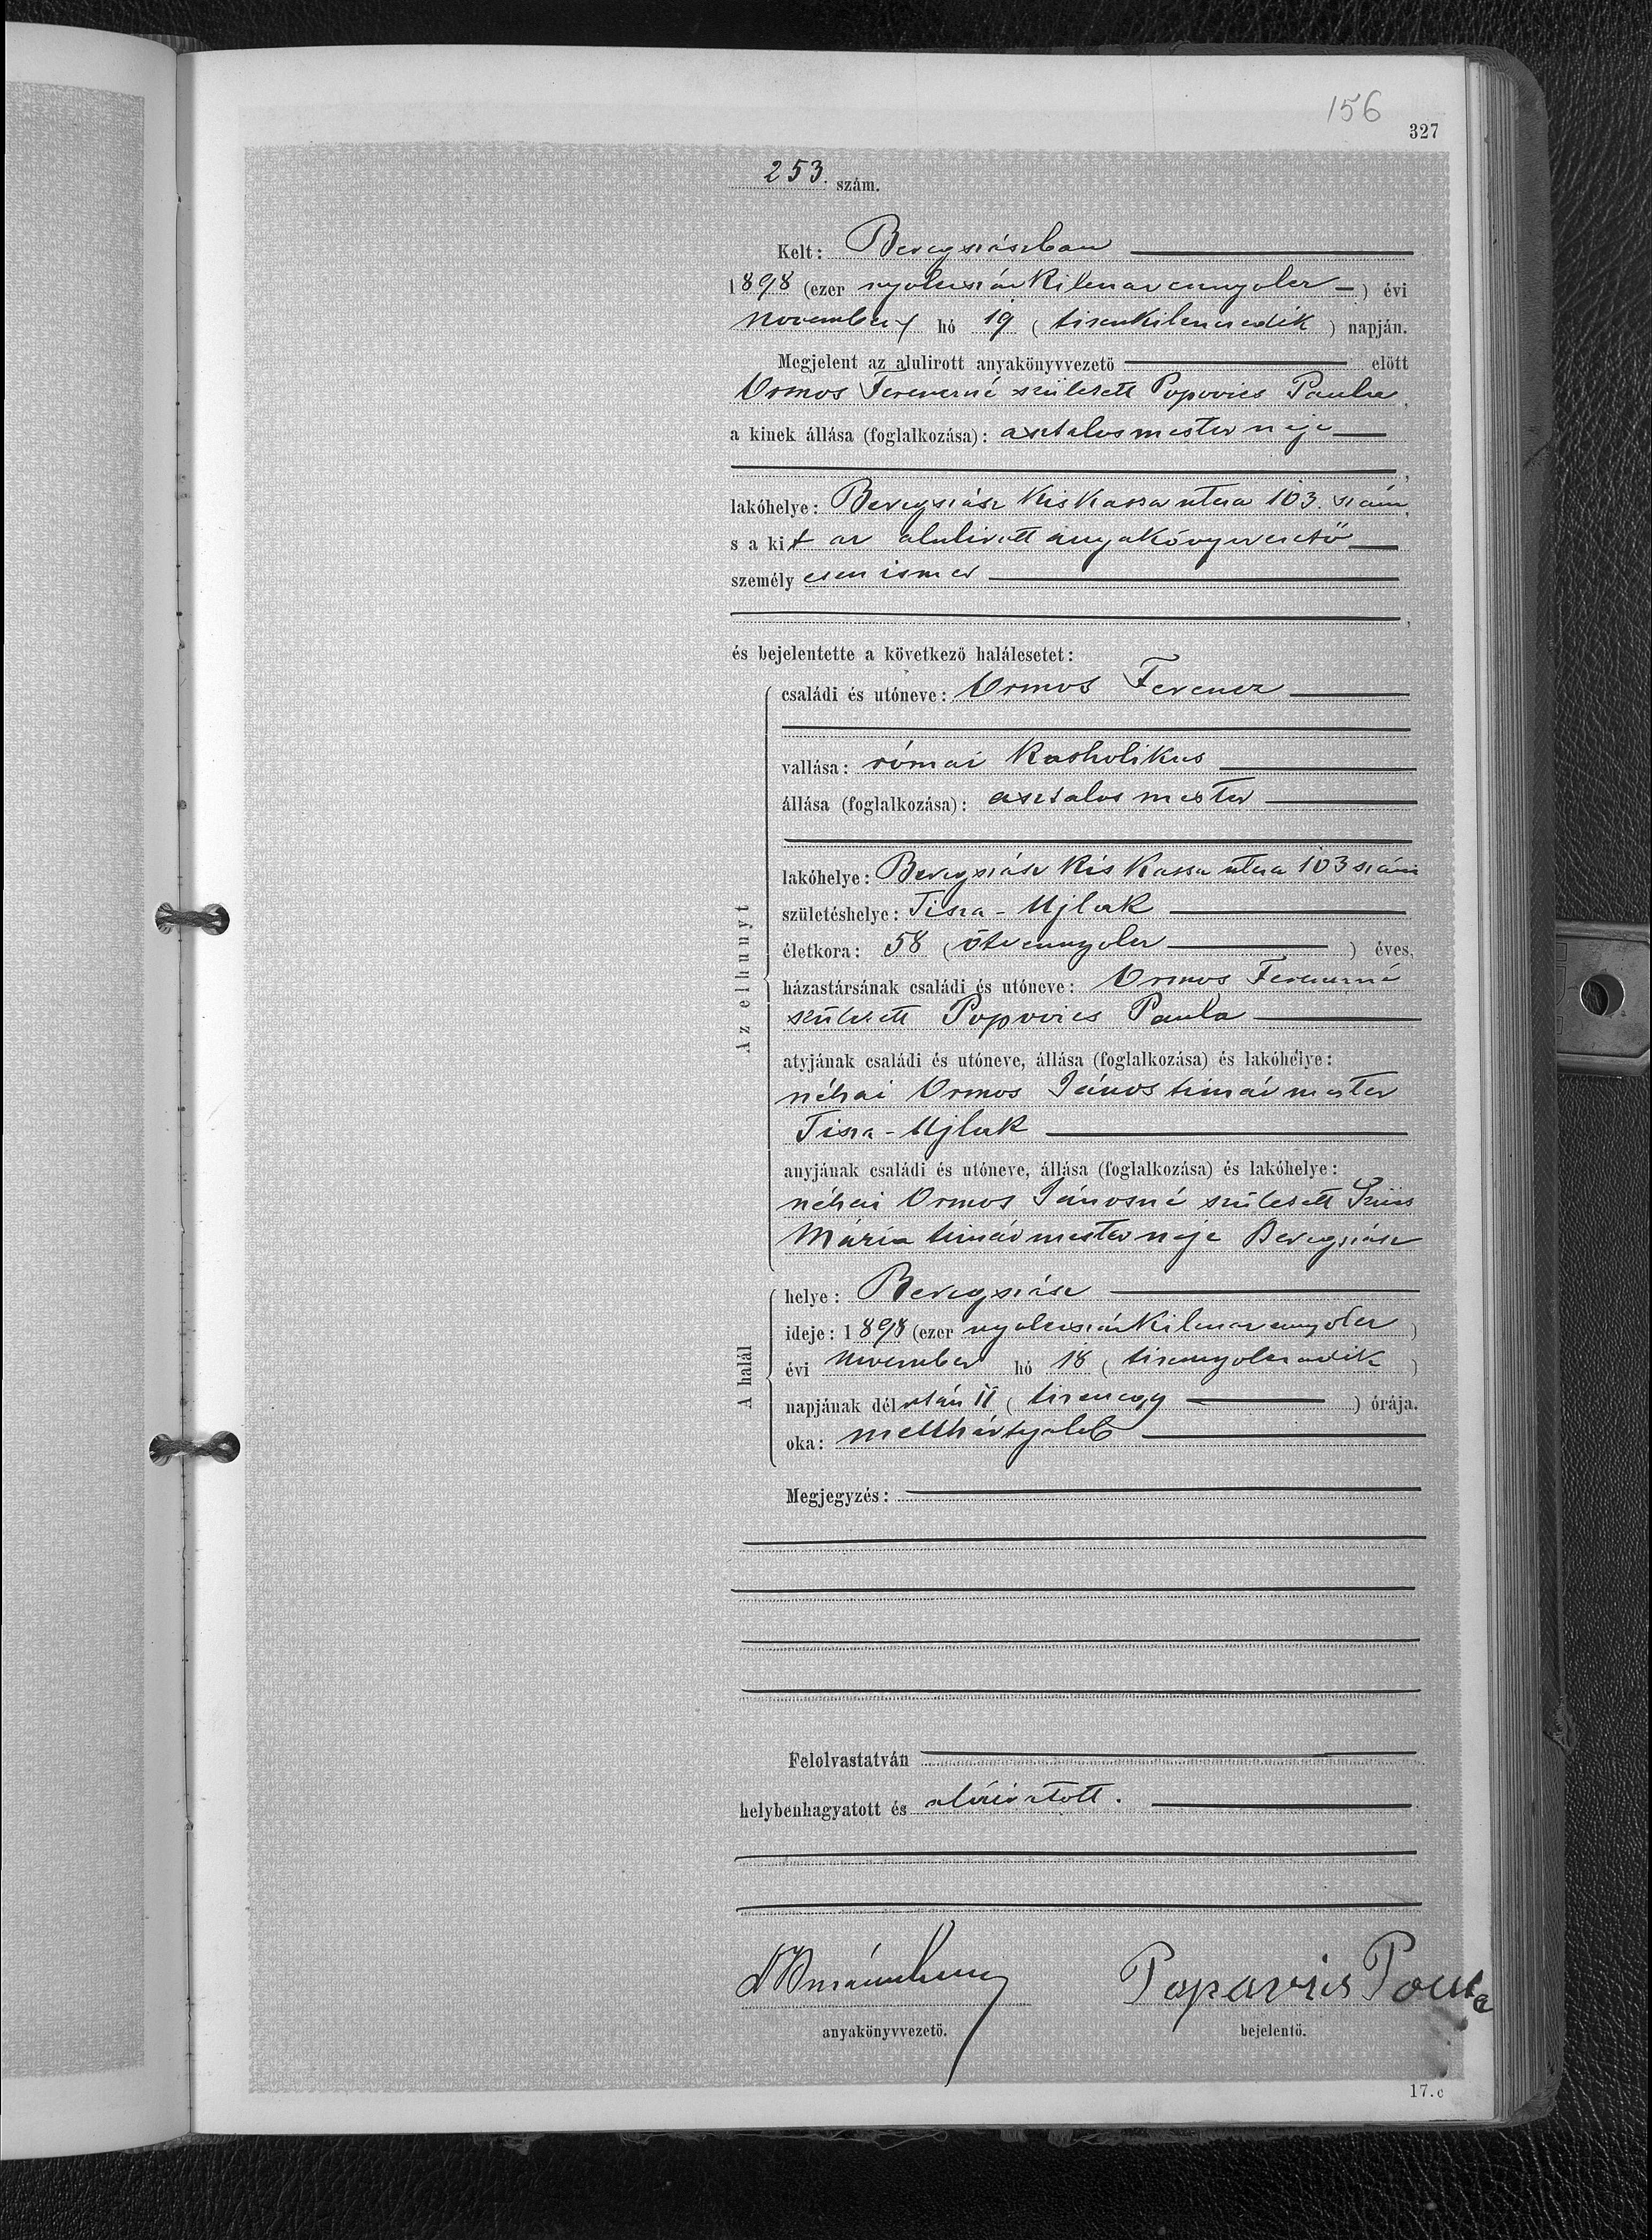 156
327
253. szám.
Kelt: Beregszászban
1898 (ezer nyolczszázkilenczvennyolcz) évi
november hó 19 (tizenkilenczedik) napján.
Megjelent az alulirott anyakönyvvezető előtt
Ormos Ferenczné született Popovics Paula,
a kinek állása (foglalkozása): asztalosmester neje
lakóhelye: Beregszász Kis Kassa utcza 103. szám,
s a kit az alulirott anyakönyvvezető
személyesen ismer
és bejelentette a következő halálesetet:
Az elhunyt
családi és utóneve: Ormos Ferencz
vallása: római katholikus
állása (foglalkozása): asztalos mester
lakóhelye: Beregszász Kis Kassa utcza 103 szám
születéshelye: Tisza-Ujlak
életkora: 58 (ötvennyolcz) éves,
házastársának családi és utóneve: Ormos Ferenczné
született Popovics Paula
atyjának családi és utóneve, állása (foglalkozása) és lakóhelye:
néhai Ormos János timár mester
Tisza-Ujlak
anyjának családi és utóneve, állása (foglalkozása) és lakóhelye:
néhai Ormos Jánosné született Szücs
Mária timármester neje Beregszász
A halál
helye: Beregszász
ideje: 1898 (ezer nyolczszázkilenczvennyolcz)
évi november hó 18 (tizennyolczadik)
napjának délután 11 (tizenegy) órája.
oka: mellhártyalob
Megjegyzés:
Felolvastatván
helybenhagyatott és aláiratott.
anyakönyvvezető.
Popavics Paula
bejelentő.
17.c